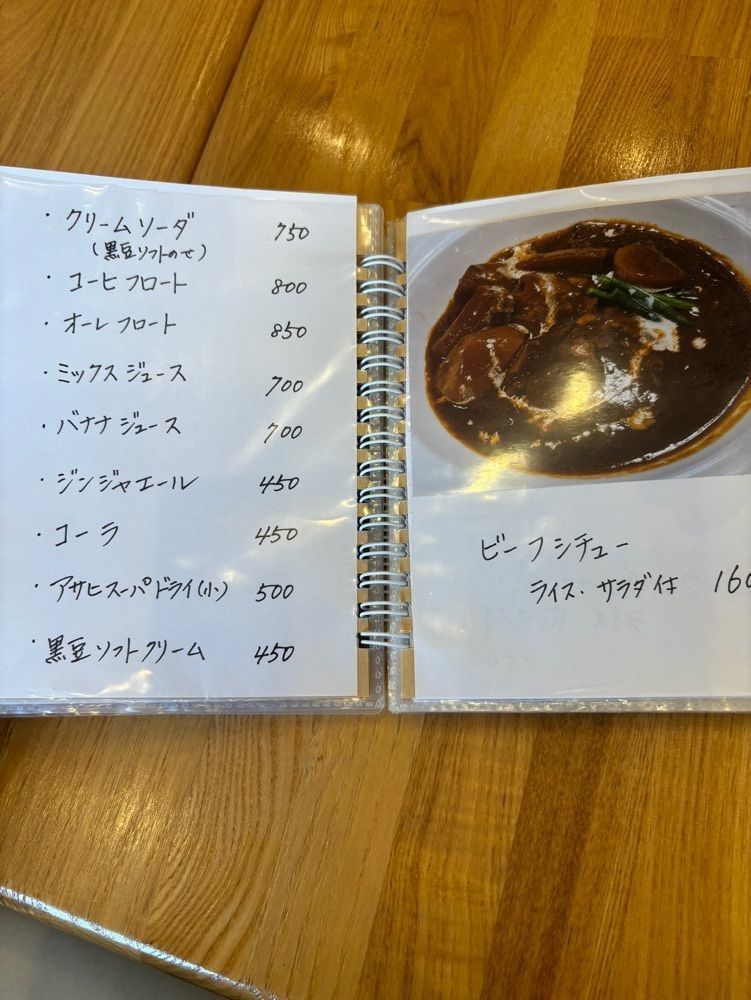 ・クリームソーダ 750
(黒豆ソフトのせ)
・コーヒフロート 800
・オーレフロート 850
・ミックスジュース 700
・バナナジュース 700
・ジンジャエール 450
・コーラ 450
・アサヒスーパードライ(小) 500
・黒豆ソフトクリーム 450
ビーフシチュー
ライス・サラダ付 160